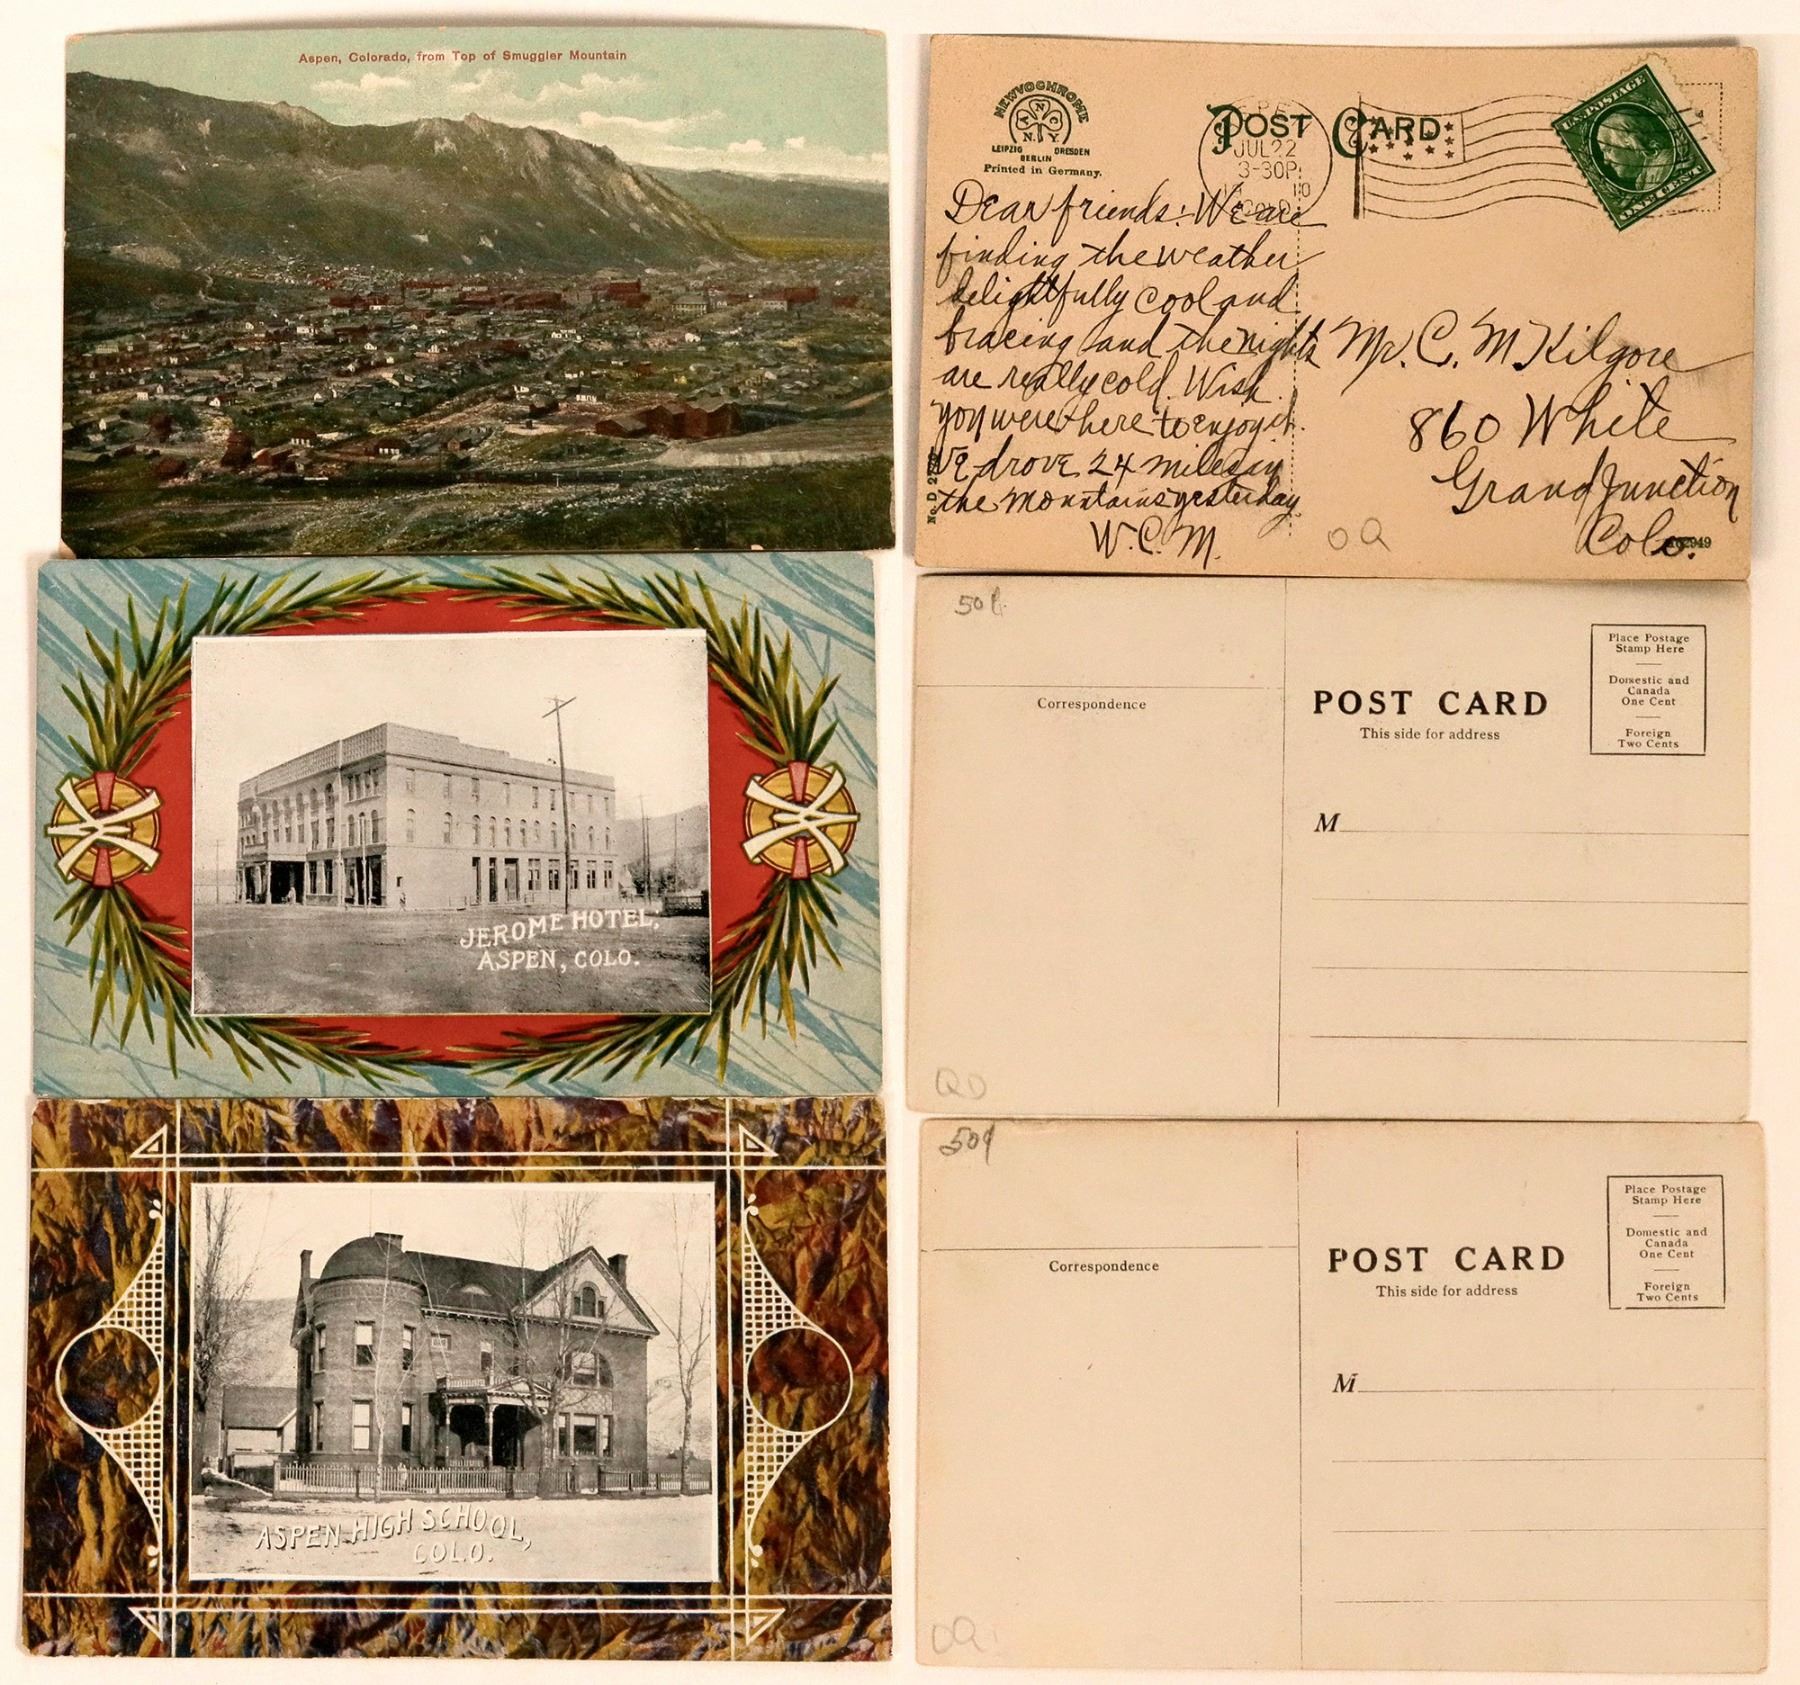 Aspen, Colorado, from Top of Smuggler Mountain
NEWVOCHROME
A N C
N. Y.
LEIPZIG DRESDEN
BERLIN
Printed in Germany.
POST CARD
JUL 22
3-30P
10
COLO.
U.S. POSTAGE
ONE CENT
Dear friends: We are
finding the weather
delightfully cool and
bracing and the nights
are really cold. Wish
you were here to enjoy it.
We drove 24 miles in
the mountains yesterday
W. C. M.
Mr. C. M Kilgore
860 White
Grand Junction
Colo.
No. D
OQ
JEROME HOTEL,
ASPEN, COLO.
50¢
Correspondence
POST CARD
This side for address
Place Postage
Stamp Here
Domestic and
Canada
One Cent
Foreign
Two Cents
M
QO
ASPEN HIGH SCHOOL,
COLO.
50¢
Correspondence
POST CARD
This side for address
Place Postage
Stamp Here
Domestic and
Canada
One Cent
Foreign
Two Cents
M
OQ